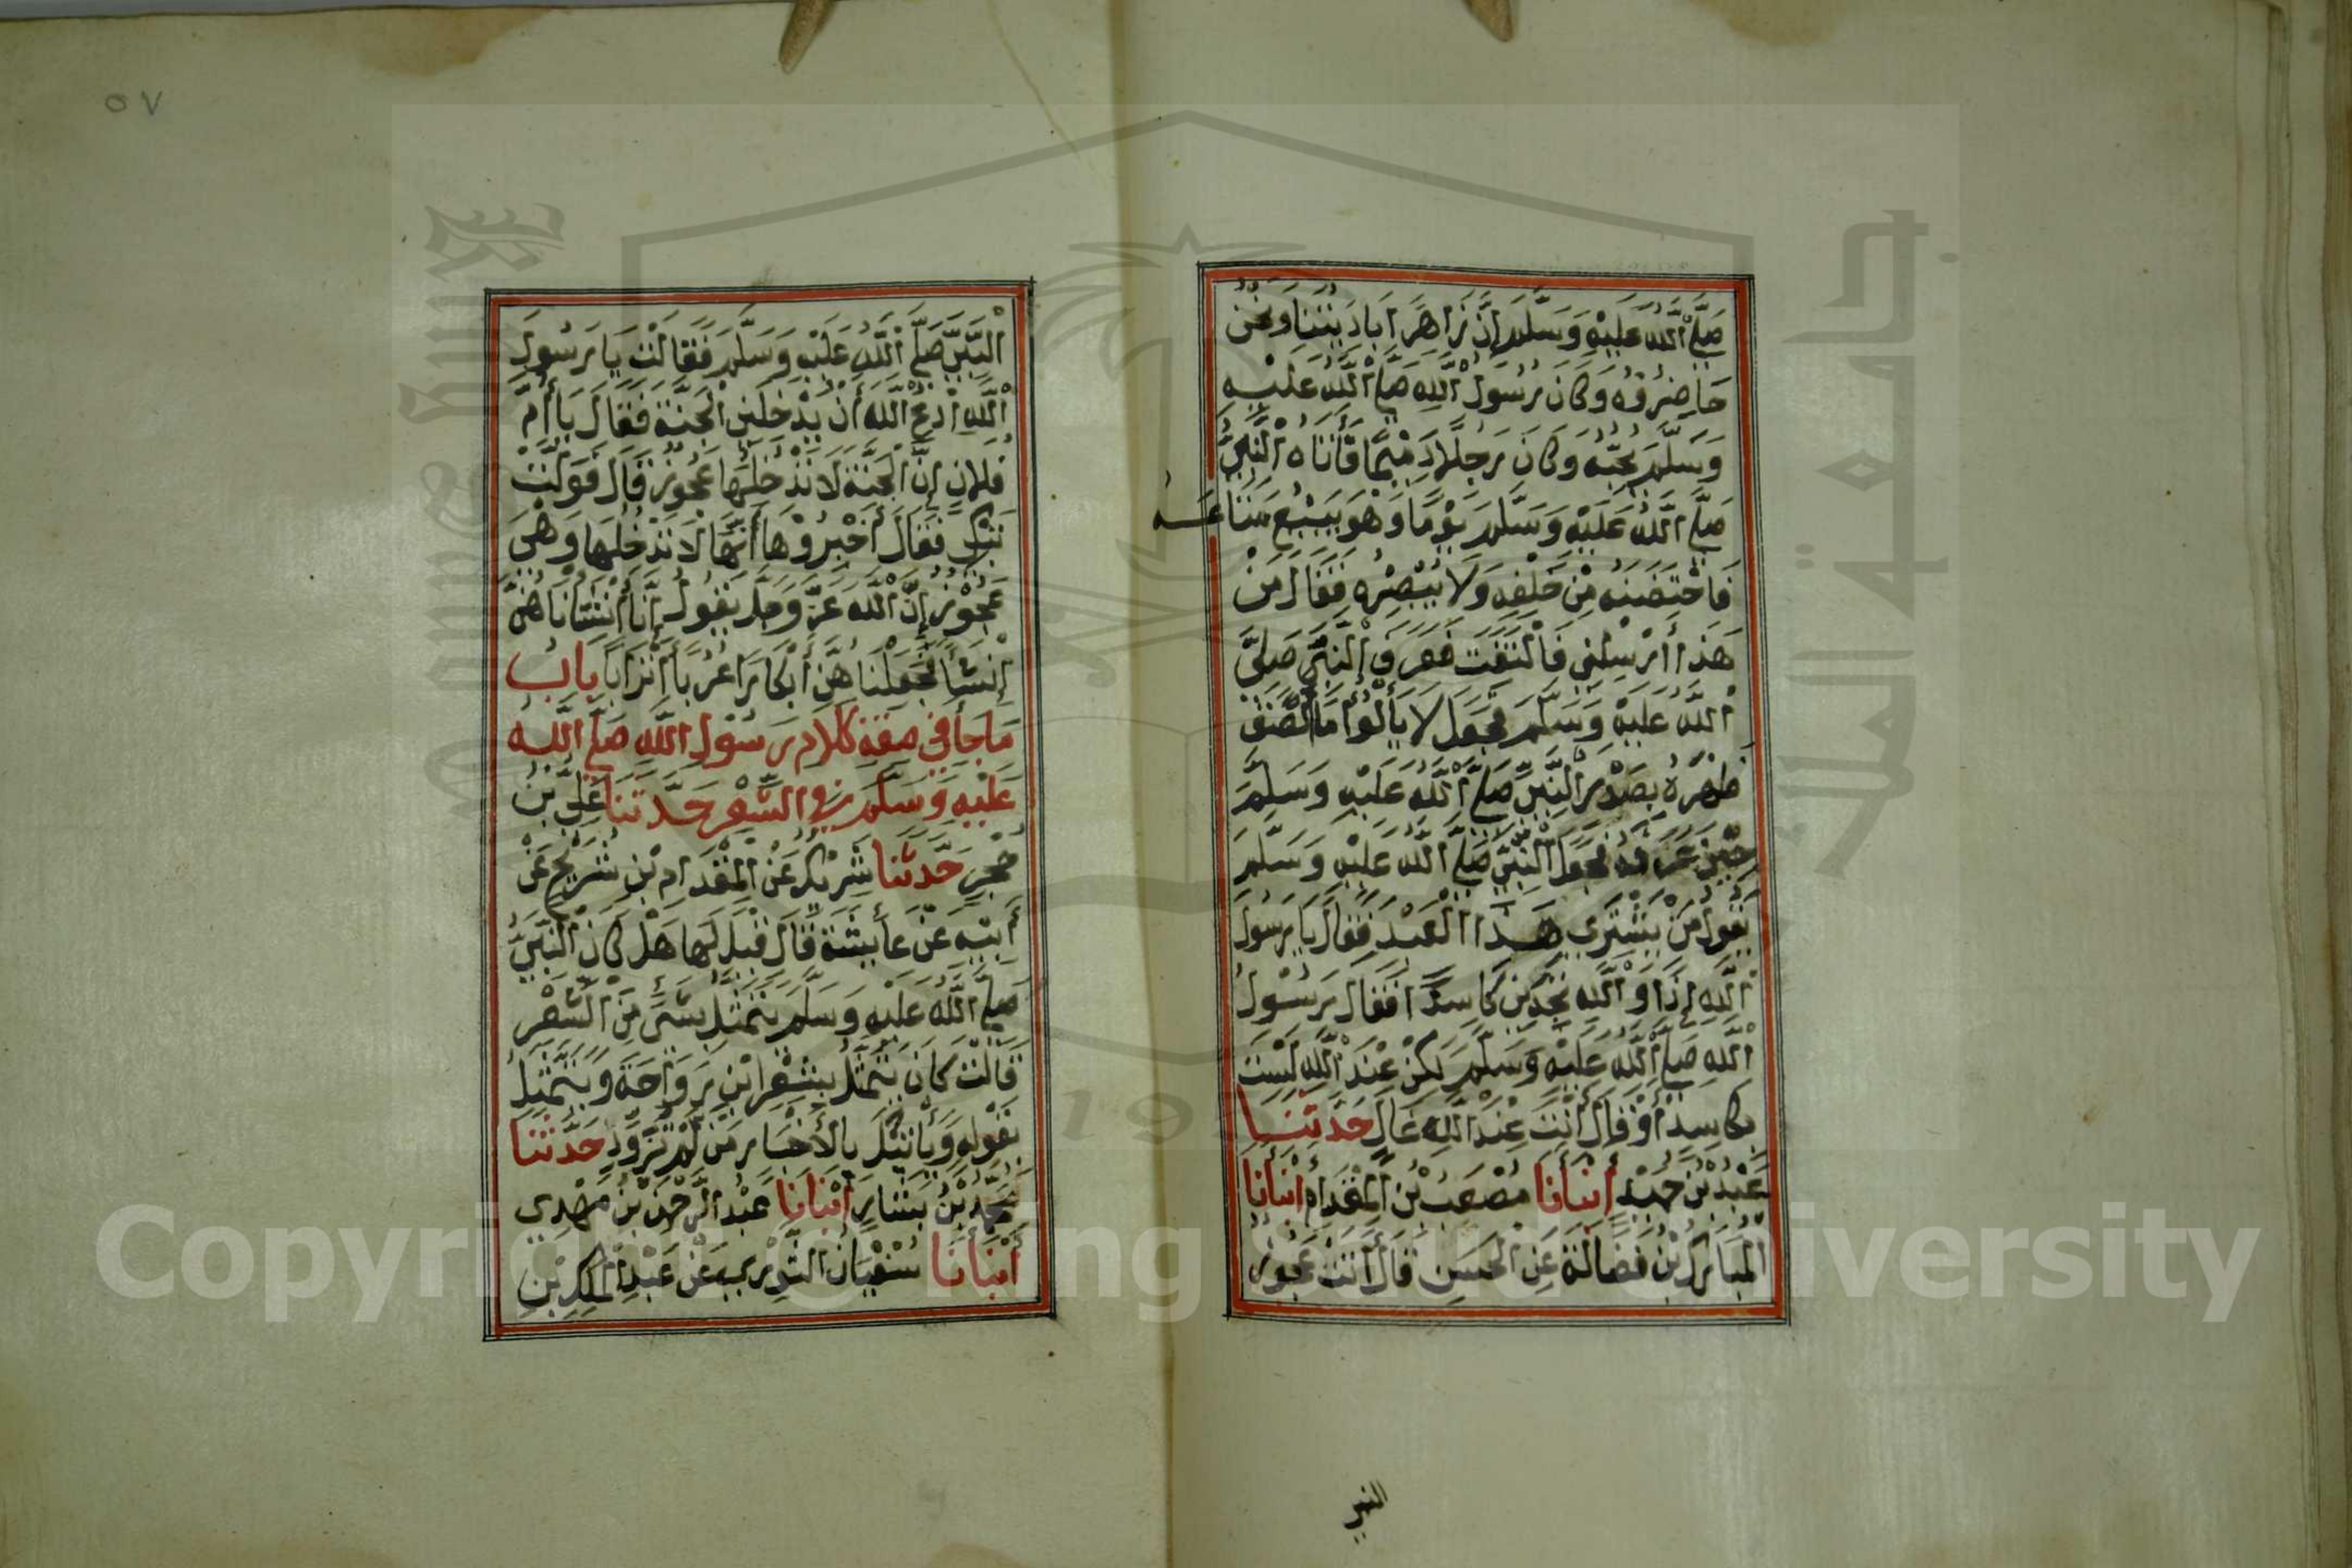 صَلَّى اللَّهُ عَلَيْهِ وَسَلَّمَ إِنَّ زَاهِرًا بَادِيَتُنَا وَنَحْنُ
حَاضِرُوْهُ وَكَانَ رَسُوْلُ اللَّهِ صَلَّى اللَّهُ عَلَيْهِ
وَسَلَّمَ يُحِبُّهُ وَكَانَ رَجُلًا دَمِيْمًا فَأَتَاهُ النَّبِيُّ
صَلَّى اللَّهُ عَلَيْهِ وَسَلَّمَ يَوْمًا وَهُوَ يَبِيْعُ مَتَاعَهُ
فَاحْتَضَنَهُ مِنْ خَلْفِهِ وَلَا يُبْصِرُهُ فَقَالَ مَنْ
هَذَا أَرْسِلْنِي فَالْتَفَتَ فَعَرَفَ النَّبِيَّ صَلَّى
اللَّهُ عَلَيْهِ وَسَلَّمَ فَجَعَلَ لَا يَأْلُوْا مَا أَلْصَقَ
ظَهْرَهُ بِصَدْرِ النَّبِيِّ صَلَّى اللَّهُ عَلَيْهِ وَسَلَّمَ
حِيْنَ عَرَفَهُ فَجَعَلَ النَّبِيُّ صَلَّى اللَّهُ عَلَيْهِ وَسَلَّمَ
يَقُوْلُ مَنْ يَشْتَرِي هَذَا الْعَبْدَ فَقَالَ يَا رَسُوْلَ
اللَّهِ إِذًا وَاللَّهِ تَجِدُنِي كَاسِدًا فَقَالَ رَسُوْلُ
اللَّهِ صَلَّى اللَّهُ عَلَيْهِ وَسَلَّمَ لَكِنْ عِنْدَ اللَّهِ لَسْتَ
بِكَاسِدٍ أَوْ قَالَ أَنْتَ عِنْدَ اللَّهِ غَالٍ حَدَّثَنَا
عَبْدُ بْنُ حُمَيْدٍ أَنْبَأَنَا مُصْعَبُ بْنُ الْمِقْدَامِ أَنْبَأَنَا
الْمُبَارَكُ بْنُ فَضَالَةَ عَنِ الْحَسَنِ قَالَ أَتَتْ عَجُوْزٌ
النبي
٥٧
النَّبِيَّ صَلَّى اللَّهُ عَلَيْهِ وَسَلَّمَ فَقَالَتْ يَا رَسُوْلَ
اللَّهِ ادْعُ اللَّهَ أَنْ يُدْخِلَنِي الْجَنَّةَ فَقَالَ يَا أُمَّ
فُلَانٍ إِنَّ الْجَنَّةَ لَا تَدْخُلُهَا عَجُوْزٌ قَالَ فَوَلَّتْ
تَبْكِي فَقَالَ أَخْبِرُوْهَا أَنَّهَا لَا تَدْخُلُهَا وَهِيَ
عَجُوْزٌ إِنَّ اللَّهَ عَزَّ وَجَلَّ يَقُوْلُ إِنَّا أَنْشَأْنَاهُنَّ
إِنْشَاءً فَجَعَلْنَاهُنَّ أَبْكَارًا عُرُبًا أَتْرَابًا بابُ
مَا جَاءَ فِي صِفَةِ كَلَامِ رَسُوْلِ اللَّهِ صَلَّى اللَّهُ
عَلَيْهِ وَسَلَّمَ فِي الشِّعْرِ حَدَّثَنَا عَلِيُّ بْنُ
حُجْرٍ حَدَّثَنَا شَرِيْكٌ عَنِ الْمِقْدَامِ بْنِ شُرَيْحٍ عَنْ
أَبِيْهِ عَنْ عَائِشَةَ قَالَ قِيْلَ لَهَا هَلْ كَانَ النَّبِيُّ
صَلَّى اللَّهُ عَلَيْهِ وَسَلَّمَ يَتَمَثَّلُ بِشَيْءٍ مِنَ الشِّعْرِ
قَالَتْ كَانَ يَتَمَثَّلُ بِشِعْرِ ابْنِ رَوَاحَةَ وَيَتَمَثَّلُ
بِقَوْلِهِ وَيَأْتِيْكَ بِالْأَخْبَارِ مَنْ لَمْ تُزَوِّدِ حَدَّثَنَا
مُحَمَّدُ بْنُ بَشَّارٍ أَنْبَأَنَا عَبْدُ الرَّحْمَنِ بْنُ مَهْدِي
أَنْبَأَنَا سُفْيَانُ الثَّوْرِي عَنْ عَبْدِ الْمَلِكِ بْنِ
Copyright © King Saud University